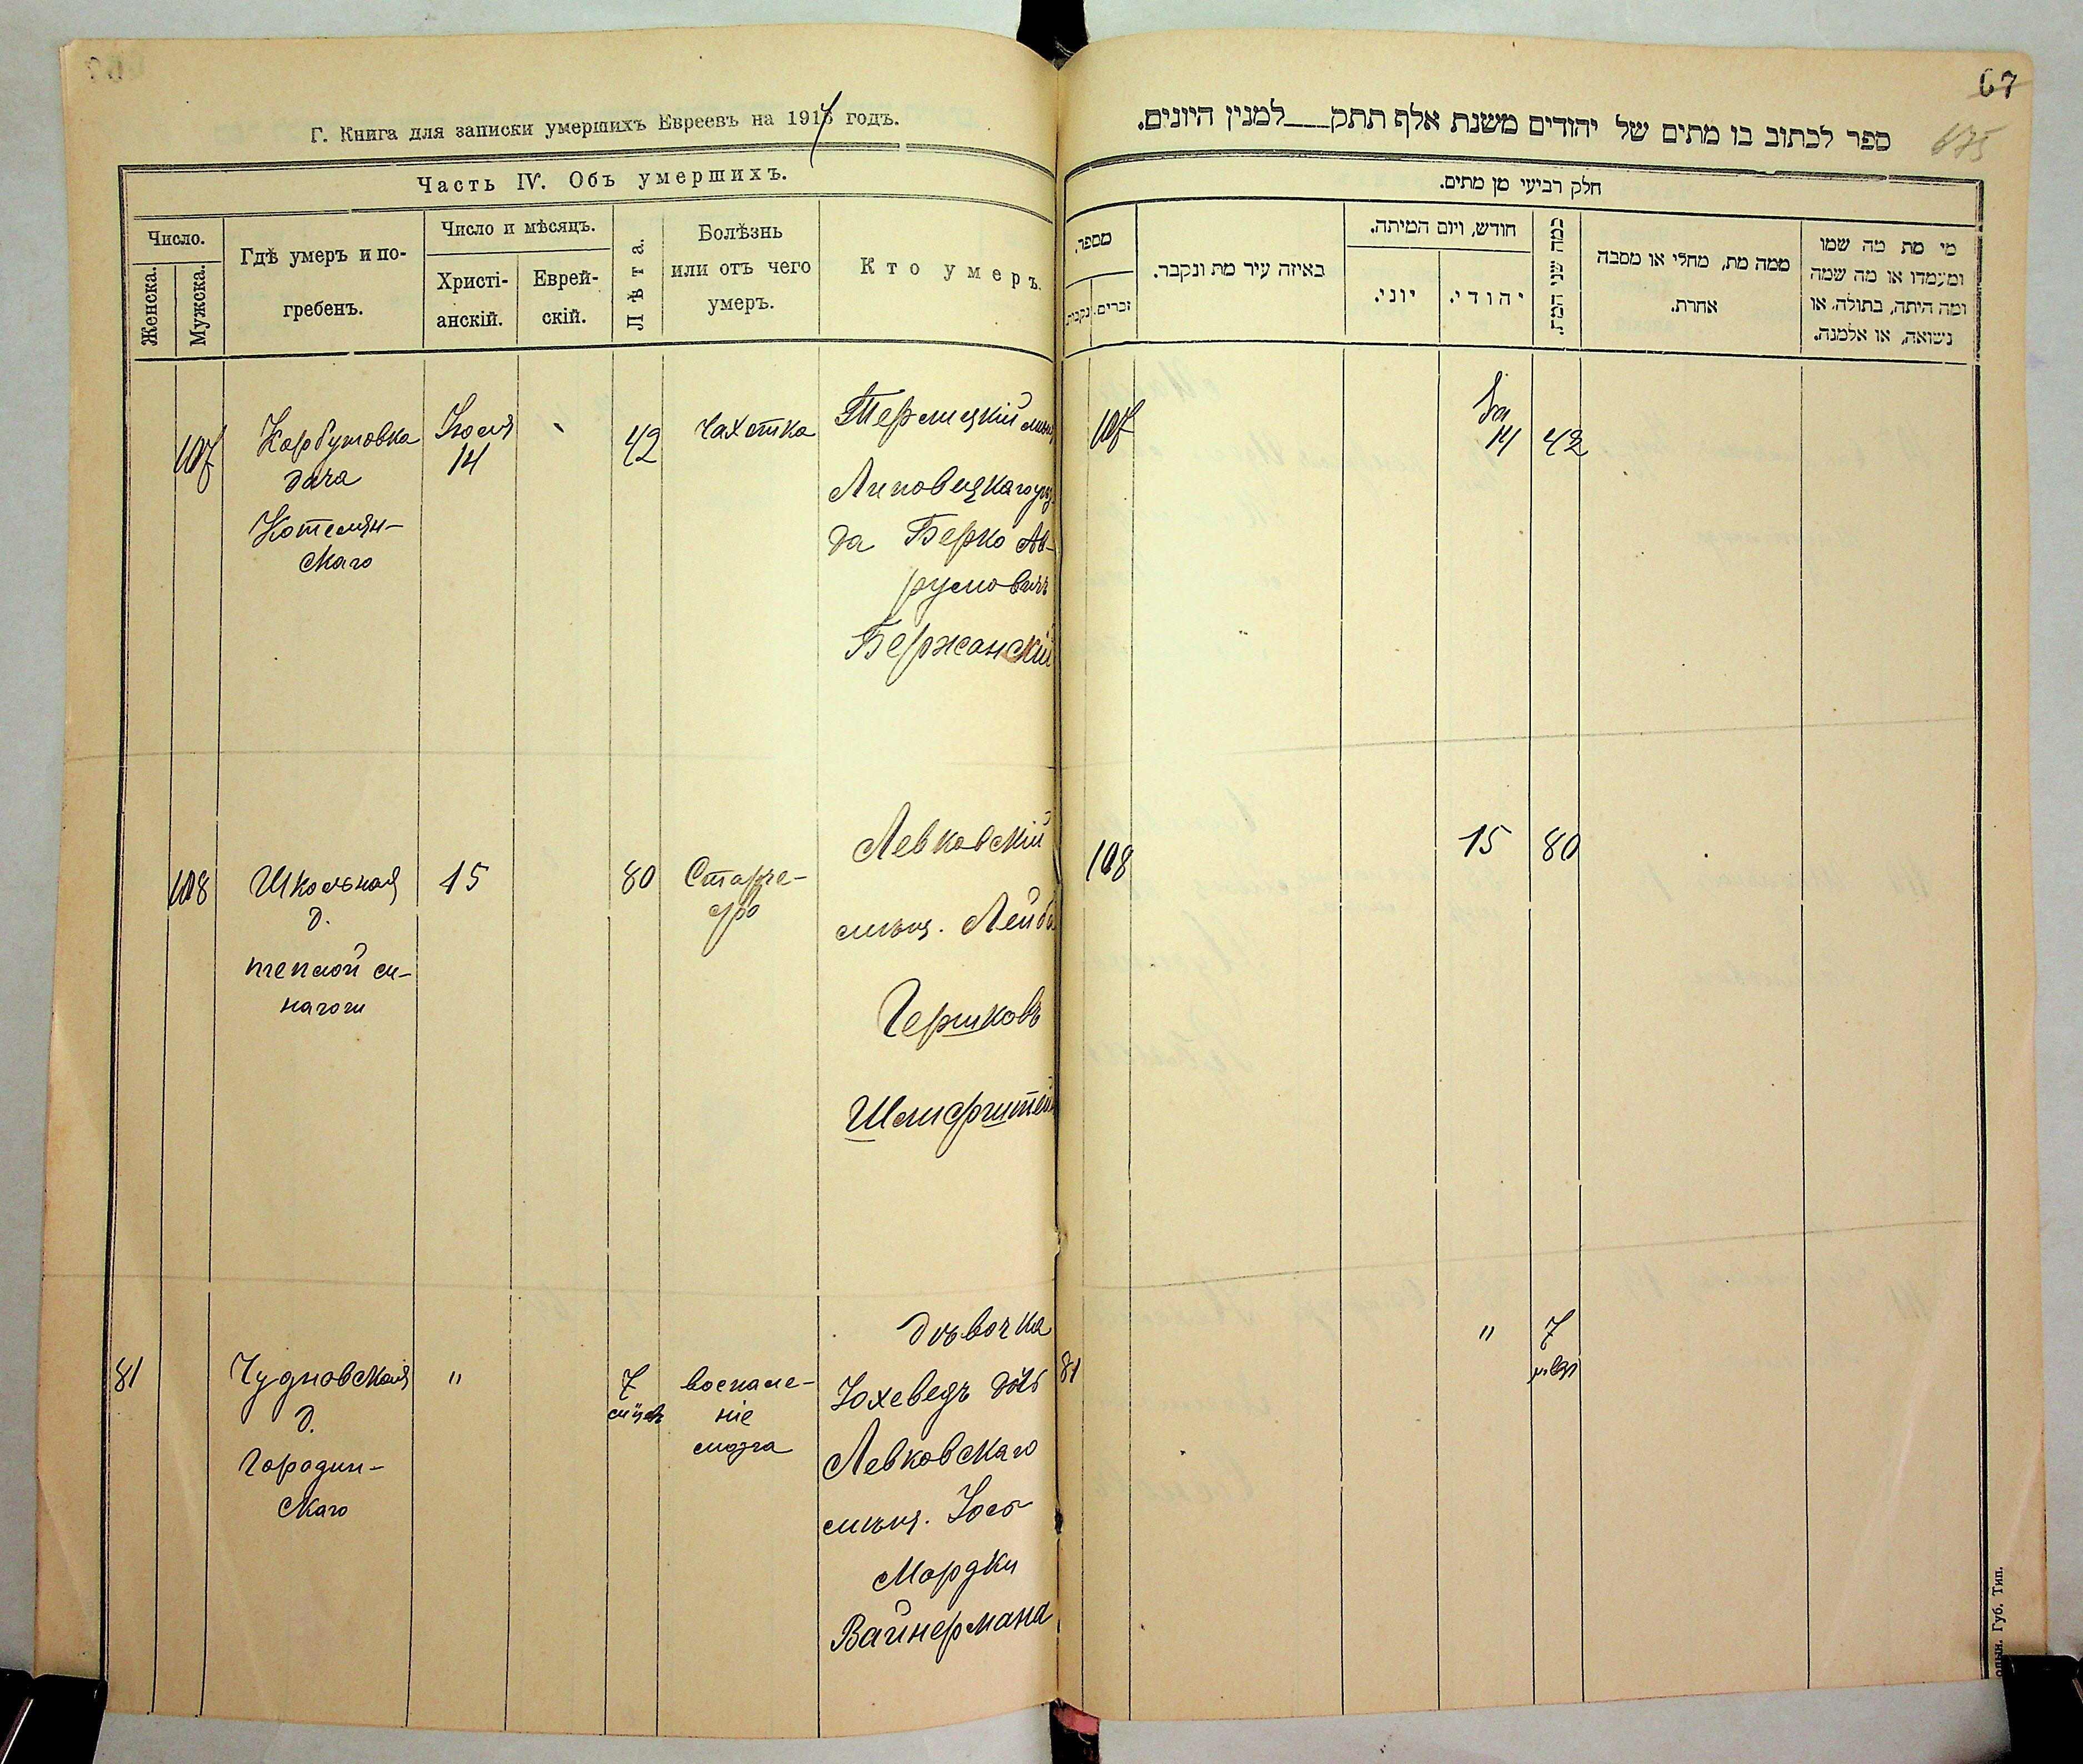 67
675
Г. Книга для записки умершихъ Евреевъ на 1917 годъ.
Часть IV. Объ умершихъ.
Число.
Женска.
Мужска.
Гдѣ умеръ и по-
гребенъ.
Число и мѣсяцъ.
Христі-
анскій.
Еврей-
скій.
Лѣта.
Болѣзнь
или отъ чего
умеръ.
Кто умеръ.
107
Корбутовка
дача
Котелян-
скаго
Іюля
14
42
Чахотка
Терлицкій мѣщ
Липовецкаго уѣз
да Берко Ав-
румовичъ
Бержанскій
108
Школьная
д.
теплой си-
нагоги
15
80
Левковскій
мѣщ. Лейба
Гершковъ
81
Чудновская
д.
Городин-
скаго
"
7
мѣс
воспале-
ніе
мозга
дѣвочка
Іохеведъ дочь
Левковскаго
мѣщ. Іось
Мордки
Вайнермана
ספר לכתוב בו מתים של יהודים משנת אלף תתק___למנין היונים.
חלק רביעי מן מתים.
מספר.
נקבות.
זכרים.
באיזה עיר מת ונקבר.
חודש, ויום המיתה.
יוני.
יהודי.
כמה שני המת.
ממה מת, מחלי או מסבה
אחרת.
מי מת מה שמו
ומעמדו או מה שמה
ומה היתה, בתולה, או
נשואה, או אלמנה.
107
14
42
108
15
80
81
"
7
Губ. Тип.